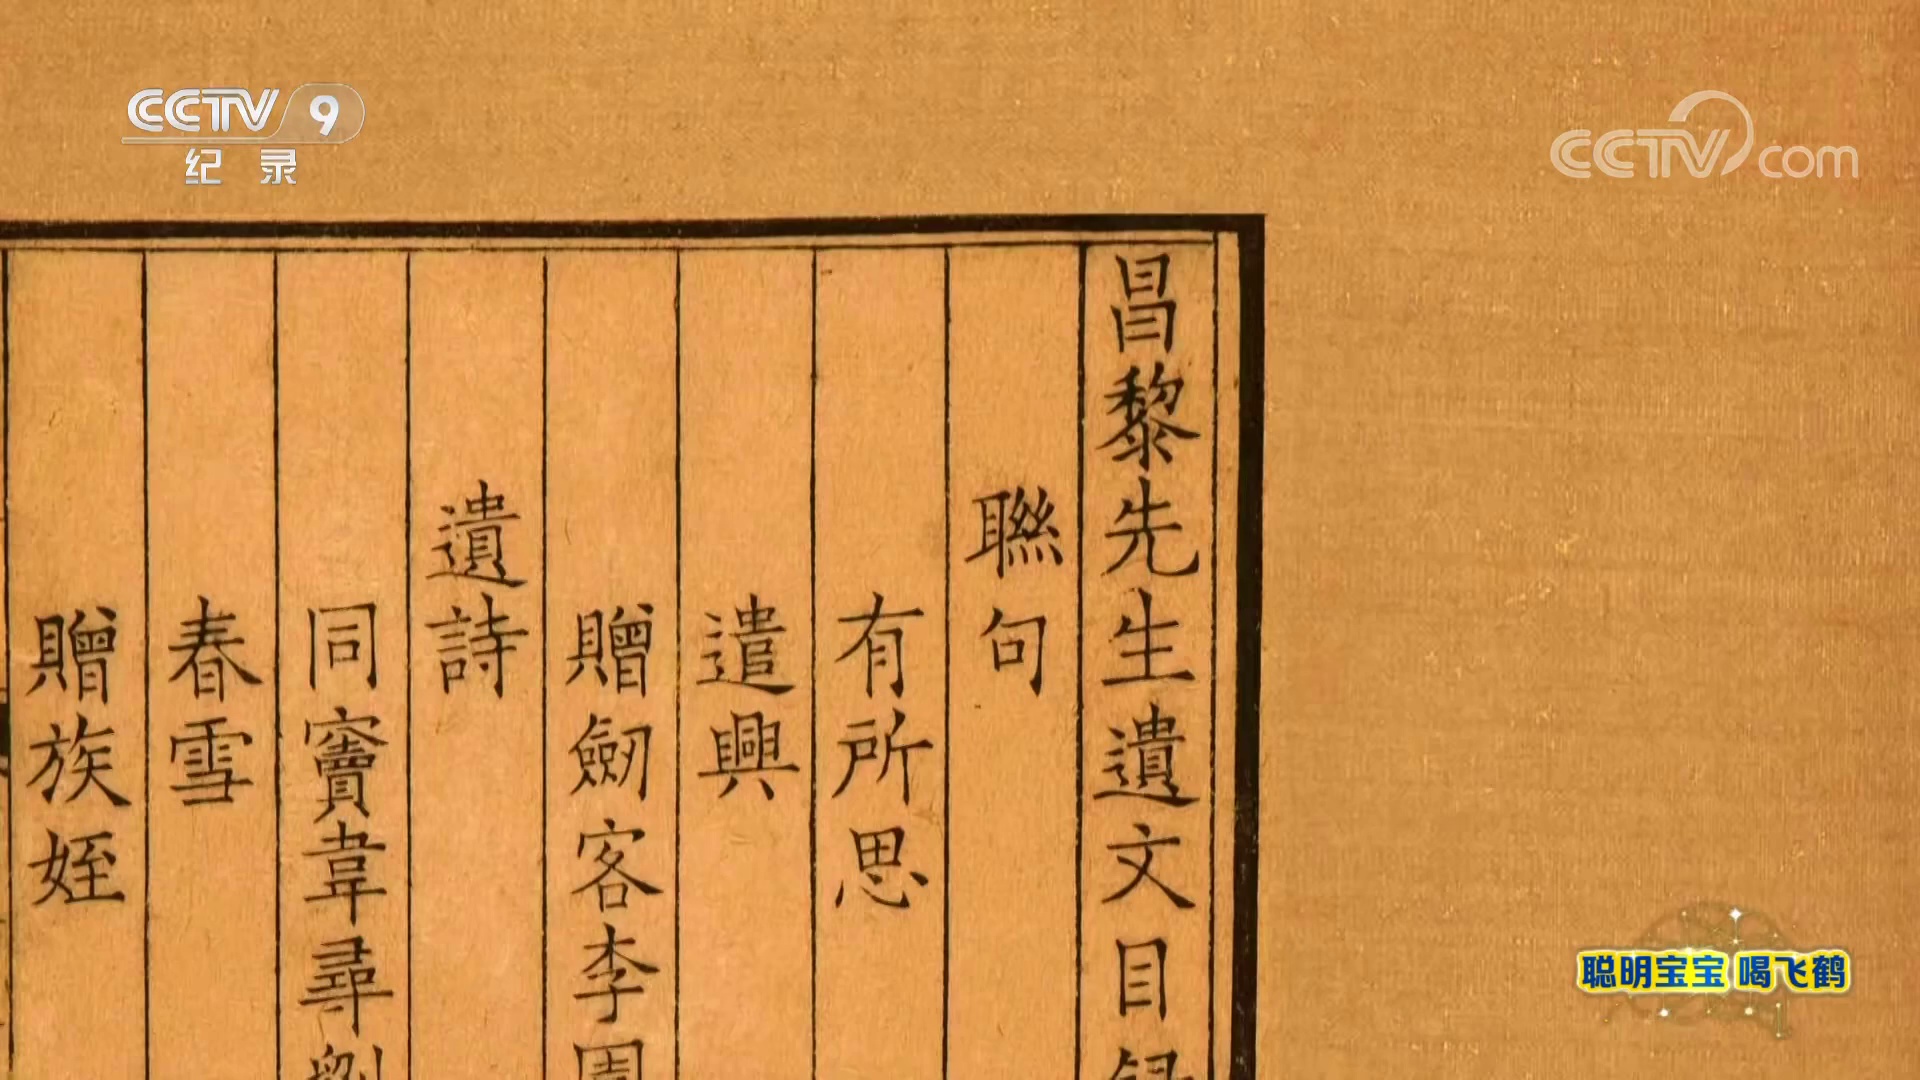 CCTV 9
纪录
CCTV com
昌黎先生遺文目録
聯句
有所思
遣興
贈劒客李園
遺詩
同竇韋尋劉
春雪
贈族姪
聪明宝宝 喝飞鹤